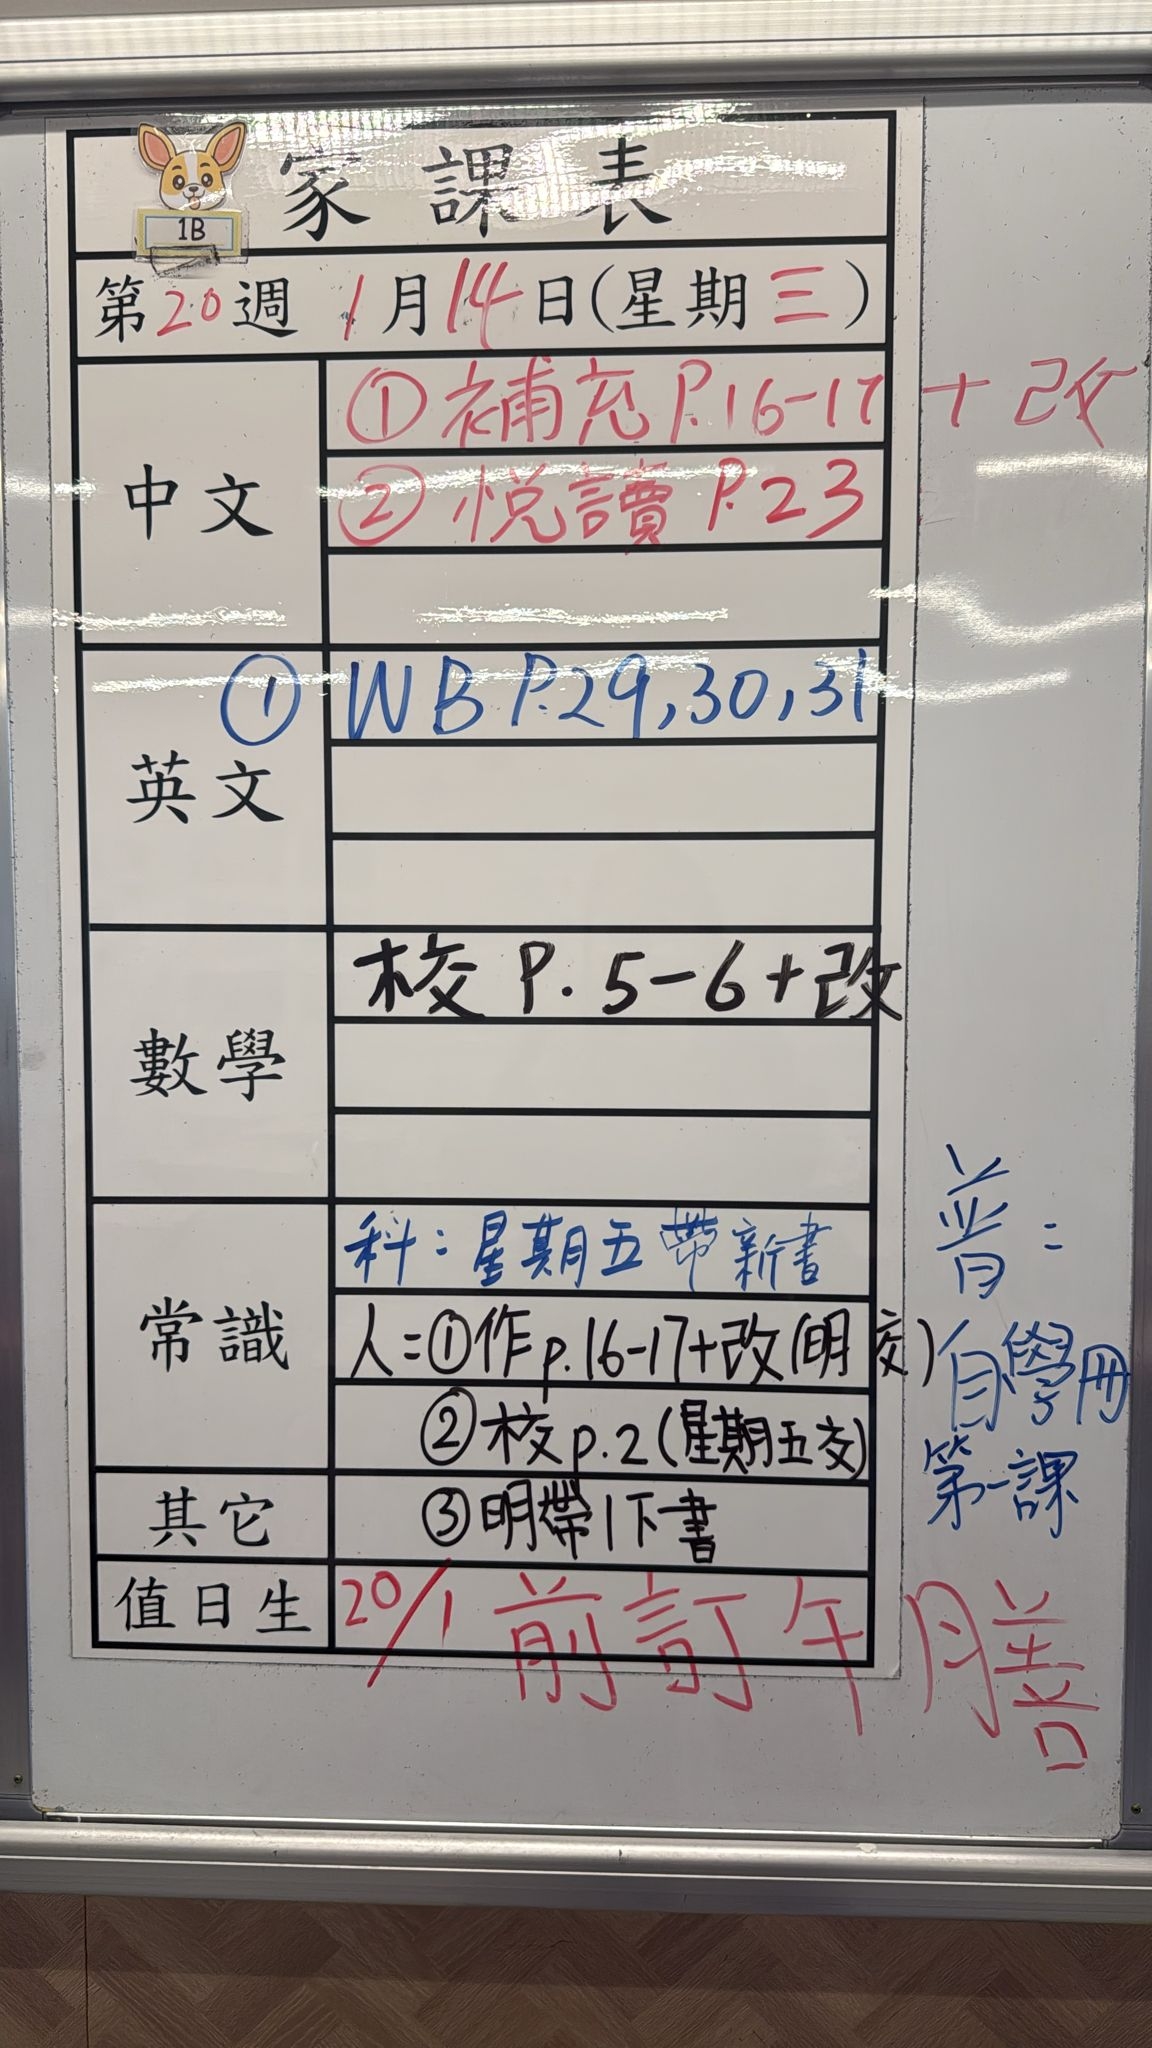 家課表
1B
第20週 1月14日(星期三)
中文
①補充P.16-17+改
②悦讀P.23
英文
①WB P.29,30,31
數學
校P.5-6+改
常識
科:星期五帶新書
人:①作p.16-17+改(明交)
②校p.2(星期五交)
其它
③明帶1下書
值日生
20/1前訂午膳
普:
自學冊
第一課